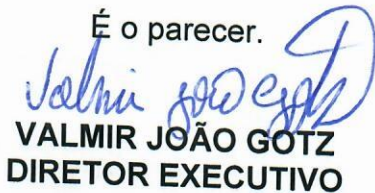 É o parecer.
Valmir João Gotz
VALMIR JOÃO GOTZ
DIRETOR EXECUTIVO